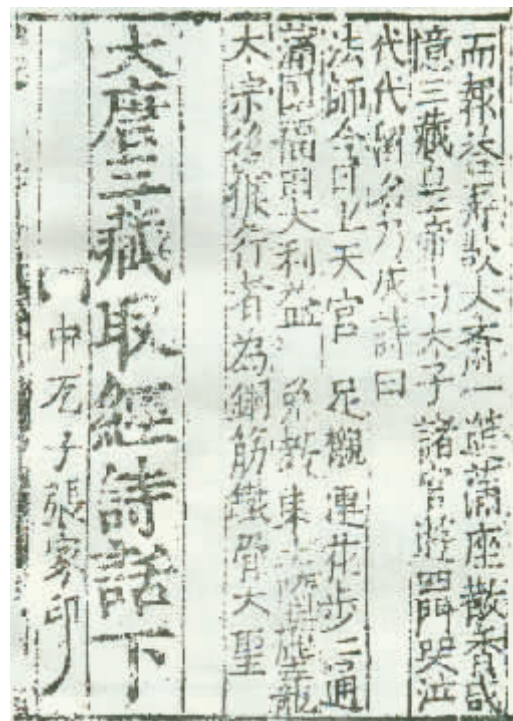 而報答再設大齋一筵滿座散香咸
憶三藏皇帝与太子諸官遊四門哭泣
代代留名乃成詩曰
法師今日上天宮　足襯蓮花步〻通
滿国福田大利益　免教東土墮塵籠
太宗後猴行者為銅筋鐵骨大聖
大唐三藏取經詩話下
中瓦子張家印